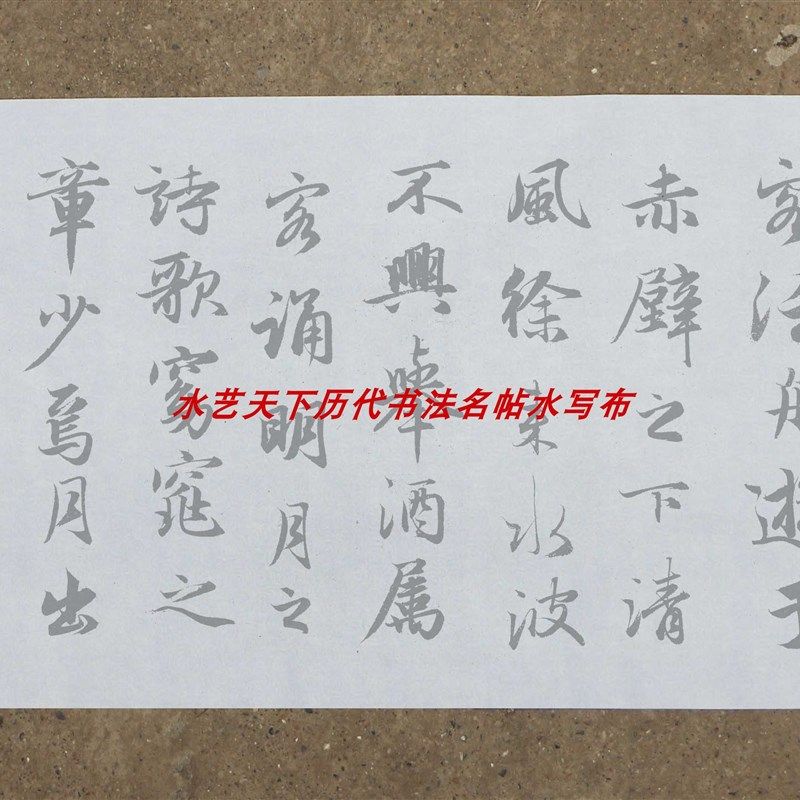 客泛舟游于
赤壁之下清
風徐来水波
不興舉酒属
客诵明月之
詩歌窈窕之
章少焉月出
水艺天下历代书法名帖水写布